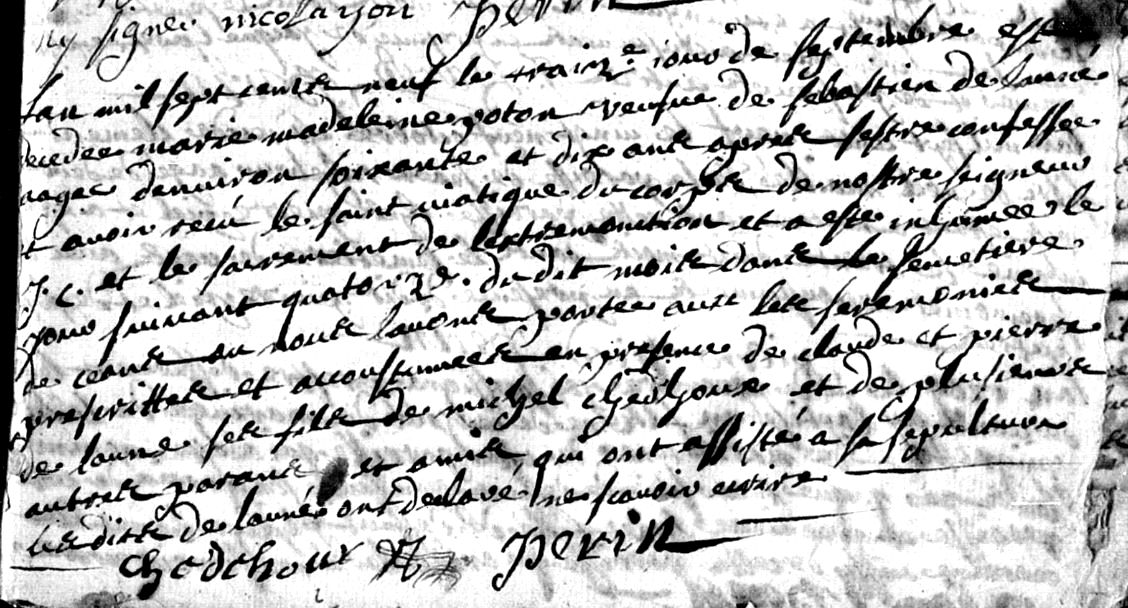 ny signer nicolas yon Perin
lan mil sept cents neuf le traize jour de septembre est
decedee marie madeleine poton veufve de sebastien de launé
aagee denuiron soixante et dix ans apres sestre confessee
et auoir receu le saint uiatique du corps de nostre seigneur
J. C. et le sacrement de lextremonction et a esté inhumee le
jour suiuant quatorze du dit mois dans le semetiere
de ceans ou nous lauons portee auec les seremonies
prescrittes et accoustumees en presence de claude et pierre
de laune ses fils de michel chedhoux et de plusieurs
autres parans et amis qui ont assisté a sa sepulture
les dits de launé ont declaré ne scauoir ecrire
chedehoux Perin